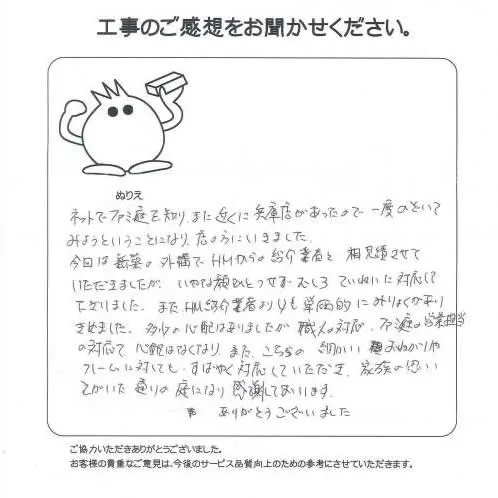 工事のご感想をお聞かせください。
ぬりえ
ネットでファミ庭を知り、また近くに兵庫店があったので一度のぞいて
みようということになり、店の方にいきました。
今回は新築の外構でHMからの紹介業者と相見積させて
いただきましたが、いやな顔ひとつせず、むしろていねいに対応して
下さいました。またHM紹介業者よりも単価的にみりょくがあり
きめました。多少の心配はありましたが職人の対応、ファミ庭の営業担当
の対応で心配はなくなり、また、こちらの細かい
クレームに対しても、すばやく対応していただき、家族の思い
えがいた通りの庭になり感謝しております。
ありがとうございました
ご協力いただきありがとうございました。
お客様の貴重なご意見は、今後のサービス品質向上のための参考にさせていただきます。